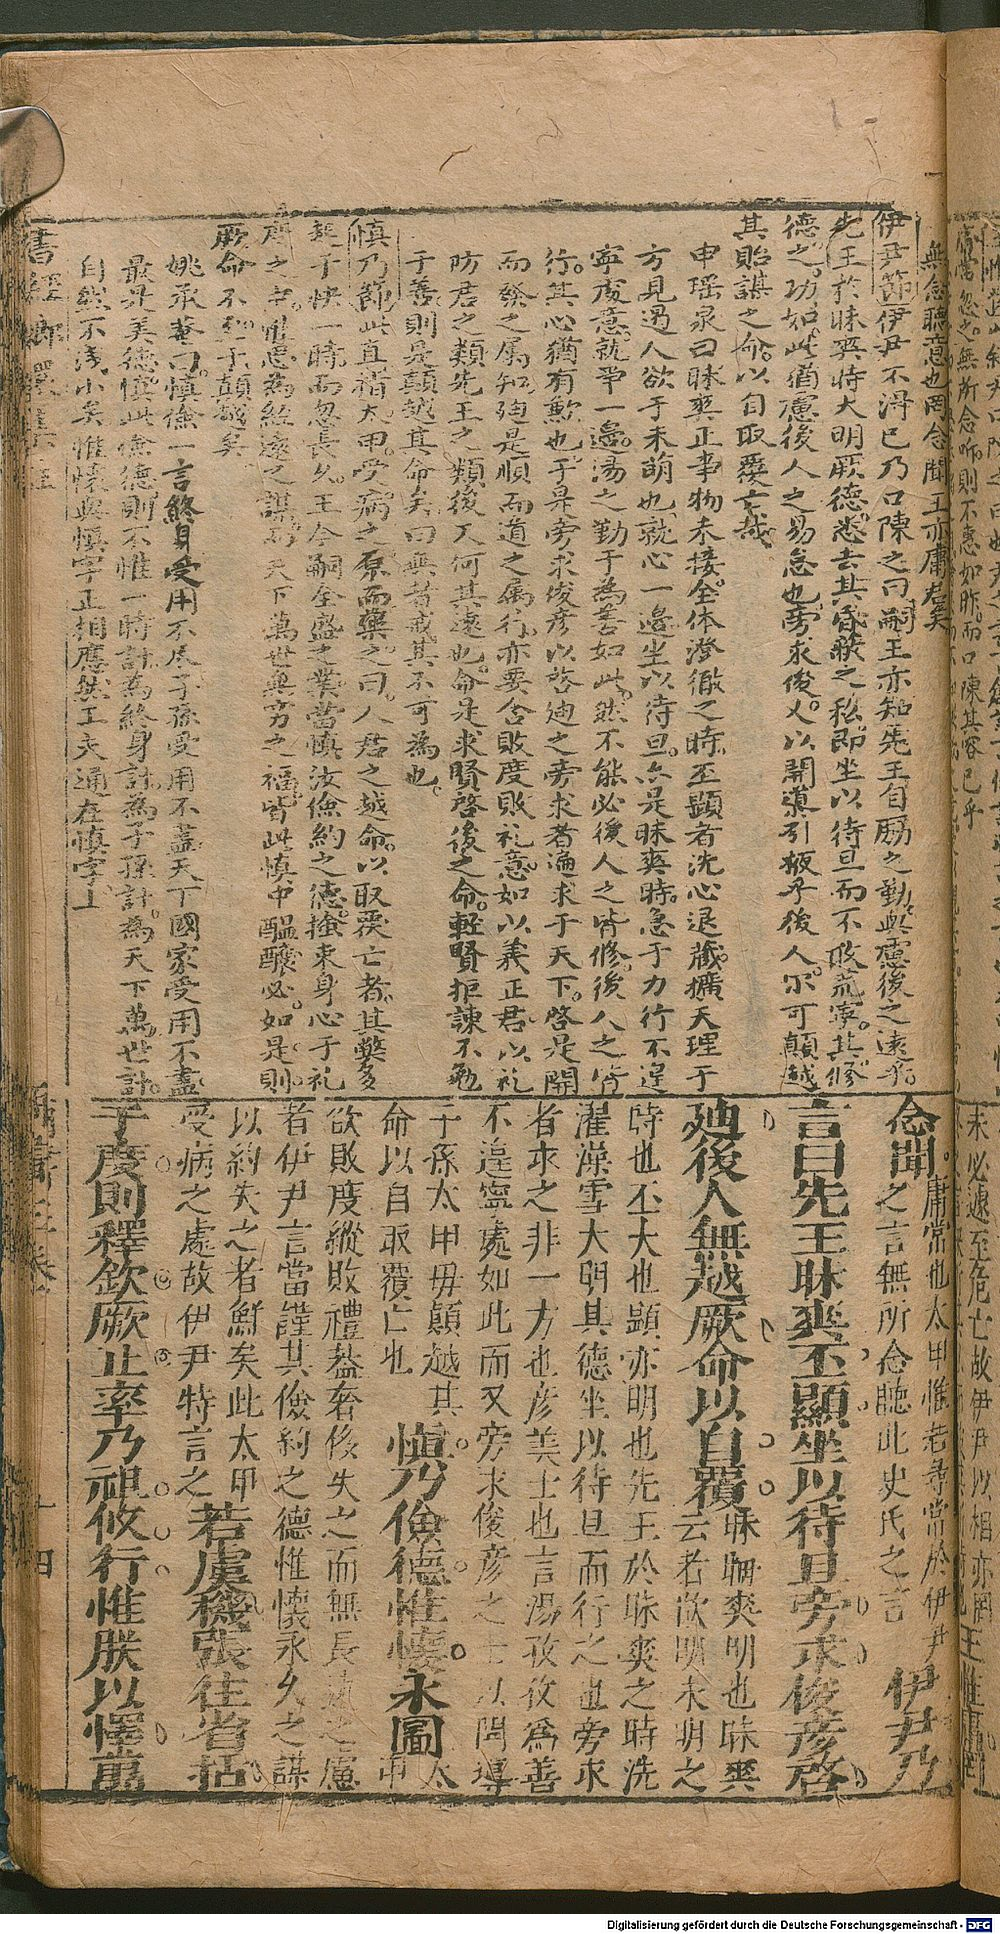 無念聽意也罔念聞王亦庸君矣
伊尹節伊尹不得已乃口陳之曰嗣王亦知先王自勵之勤與慮後之遠乎
先王於昧爽時大明厥德悉去其昏蔽之私即坐以待旦而不敢荒寧其修
德之功如此猶慮後人之易怠也旁求後乂以開導引掖乎後人尔可顛越
其貽謀之命以自取覆亡哉
申瑶泉曰昧爽正事物未接全体澄徹之時丕顯者洗心退藏擴天理于
方見遏人欲于未萌也就心一邊坐以待旦亦是昧爽時急于力行不遑
寧處意就身一邊湯之勤于為善如此然不能必後人之皆修後人之皆
行其心猶有歉也于是旁求俊彦以啓迪之旁求者遍求于天下啓是開
而發之属知廸是順而道之属行亦要含敗度敗礼意如以義正君以礼
防君之類先王之類後人何其遠也命是求賢啓後之命軽賢拒諫不勉
于善則是顛越其命矣曰無者戒其不可為也
慎乃節此直指太甲受病之原而藥之曰人君之越命以取覆亡者其獘多
起于快一時而忽長久王今嗣全盛之業當慎汝儉約之德撿束身心于礼
度之中惟思為經遠之謀為天下萬世無窮之福皆此慎中醞釀必如是則
厥命不至于顛越矣
姚承菴曰慎儉一言終身受用不尽子孫受用不盡天下國家受用不盡
最是美德慎此儉德則不惟一時計為終身計為子孫計為天下萬世計
自然不浅小矣惟懷與慎字正相應然工夫通在慎字上
念聞庸常也太甲惟若尋常於伊尹
之言無所念聽此史氏之言伊尹乃
言曰先王昧爽丕顯坐以待旦旁求俊彦啓
廸後人無越厥命以自覆昧䀮爽明也昧爽
云者欲明未明之
時也丕大也顯亦明也先王於昧爽之時洗
濯澡雪大明其德坐以待旦而行之也旁求
者求之非一方也彦美士也言湯孜孜為善
不遑寧處如此而又旁求俊彦之士以開導
子孫太甲毋顛越其
命以自取覆亡也慎乃儉德惟懷永圖太甲
欲敗度縱敗禮葢奢侈失之而無長遠之慮
者伊尹言當謹其儉約之德惟懷永久之謀
以約失之者鮮矣此太甲
受病之處故伊尹特言之若虞機張往省括
于度則釋欽厥止率乃祖攸行惟朕以懌萬
十四
Digitalisierung gefördert durch die Deutsche Forschungsgemeinschaft - DFG